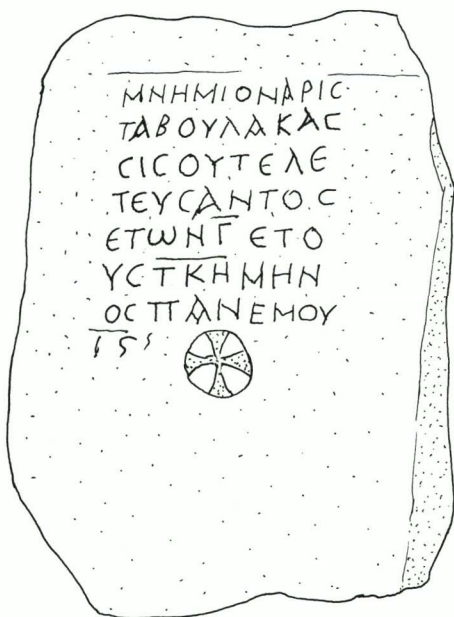 ΜΝΗΜΙΟΝΑΡΙϹ
ΤΑΒΟΥΛΑΚΑϹ
ϹΙϹΟΥΤΕΛΕ
ΤΕΥϹΑΝΤΟϹ
ΕΤΩΝΝ̅Γ̅ΕΤΟ
ΥϹΤ̅Κ̅Η̅ΜΗΝ
ΟϹΠΑΝΕΜΟΥ
Ι̅Ϛ̅ʹ